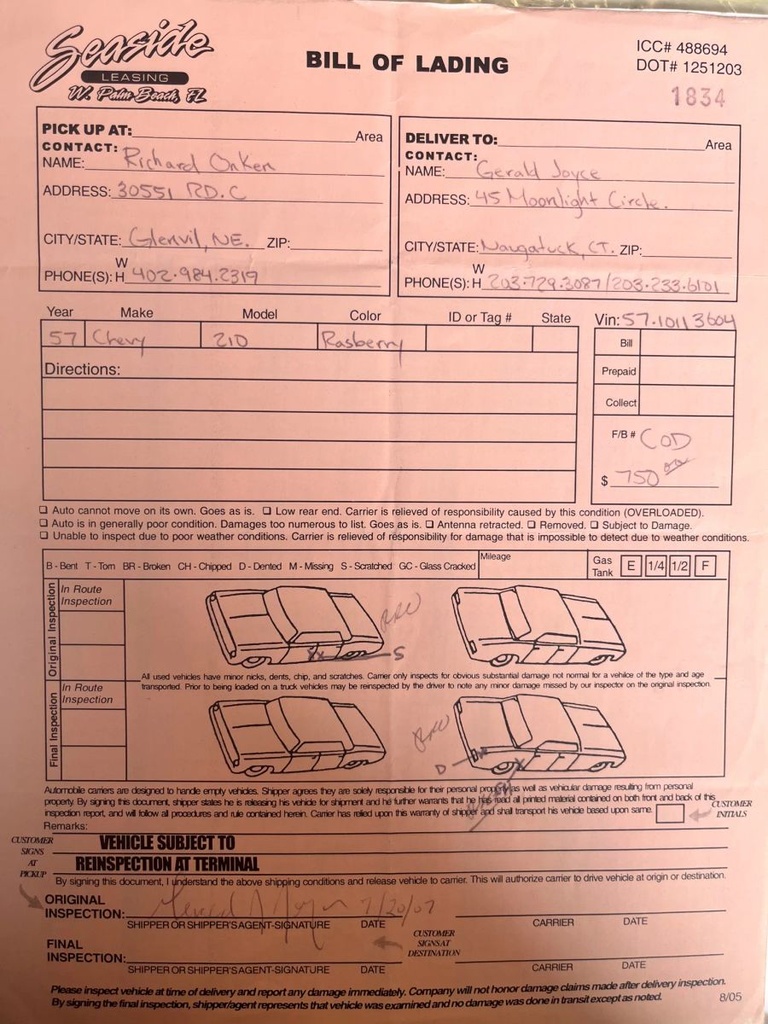 Seaside
LEASING
W. Palm Beach, FL
BILL OF LADING
ICC# 488694
DOT# 1251203
1834
PICK UP AT: Area
CONTACT:
NAME: Richard Onken
ADDRESS: 30551 RD. C
CITY/STATE: Glenvil, NE. ZIP:
W
PHONE(S): H 402.984.2319
DELIVER TO: Area
CONTACT:
NAME: Gerald Joyce
ADDRESS: 45 Moonlight Circle.
CITY/STATE: Naugatuck, CT. ZIP:
W
PHONE(S): H 203.729.3087/203.233.6101
Year Make Model Color ID or Tag # State
57 Chevy 210 Rasberry
Vin: 57.10113604
Bill
Prepaid
Collect
F/B # COD
$ 750 00
Directions:
❑ Auto cannot move on its own. Goes as is. ❑ Low rear end. Carrier is relieved of responsibility caused by this condition (OVERLOADED).
❑ Auto is in generally poor condition. Damages too numerous to list. Goes as is. ❑ Antenna retracted. ❑ Removed. ❑ Subject to Damage.
❑ Unable to inspect due to poor weather conditions. Carrier is relieved of responsibility for damage that is impossible to detect due to weather conditions.
B - Bent T - Torn BR - Broken CH - Chipped D - Dented M - Missing S - Scratched GC - Glass Cracked
Mileage
Gas Tank E 1/4 1/2 F
Original Inspection
In Route
Inspection
S
All used vehicles have minor nicks, dents, chip, and scratches. Carrier only inspects for obvious substantial damage not normal for a vehilce of the type and age
transported. Prior to being loaded on a truck vehicles may be reinspected by the driver to note any minor damage missed by our inspector on the original inspection.
Final Inspection
In Route
Inspection
D
Automobile carriers are designed to handle empty vehicles. Shipper agrees they are solely responsible for their personal property as well as vehicular damage resulting from personal
property. By signing this document, shipper states he is releasing his vehicle for shipment and he further warrants that he has read all printed material contained on both front and back of this
inspection report, and will follow all procedures and rule contained herein. Carrier has relied upon this warranty of shipper and shall transport his vehicle based upon same.
CUSTOMER
INITIALS
Remarks:
VEHICLE SUBJECT TO
REINSPECTION AT TERMINAL
CUSTOMER
SIGNS
AT
PICKUP
By signing this document, I understand the above shipping conditions and release vehicle to carrier. This will authorize carrier to drive vehicle at origin or destination.
ORIGINAL
INSPECTION: 7/20/07
SHIPPER OR SHIPPER'S AGENT-SIGNATURE DATE CARRIER DATE
CUSTOMER
SIGNS AT
DESTINATION
FINAL
INSPECTION:
SHIPPER OR SHIPPER'S AGENT-SIGNATURE DATE CARRIER DATE
Please inspect vehicle at time of delivery and report any damage immediately. Company will not honor damage claims made after delivery inspection.
By signing the final inspection, shipper/agent represents that vehicle was examined and no damage was done in transit except as noted.
8/05